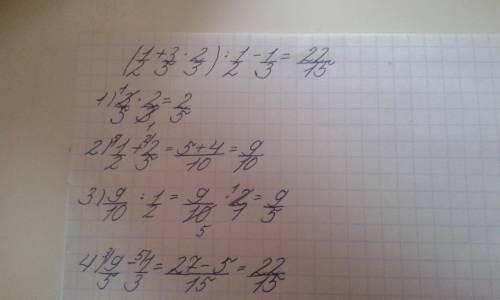 (1/2 + 3/5 · 2/3) : 1/2 - 1/3 = 22/15
1) 3/5 · 2/3 = 2/5
2) 1/2 + 2/5 = 5+4/10 = 9/10
3) 9/10 : 1/2 = 9/10 · 2/1 = 9/5
4) 9/5 - 1/3 = 27-5/15 = 22/15